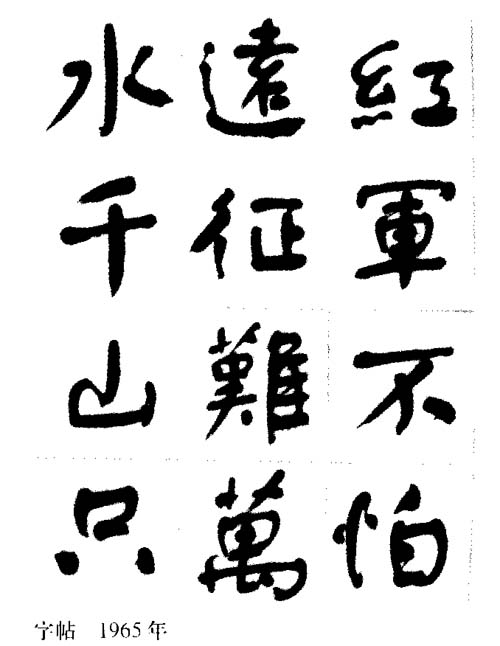 紅軍不怕
遠征難萬
水千山只
字帖 1965年